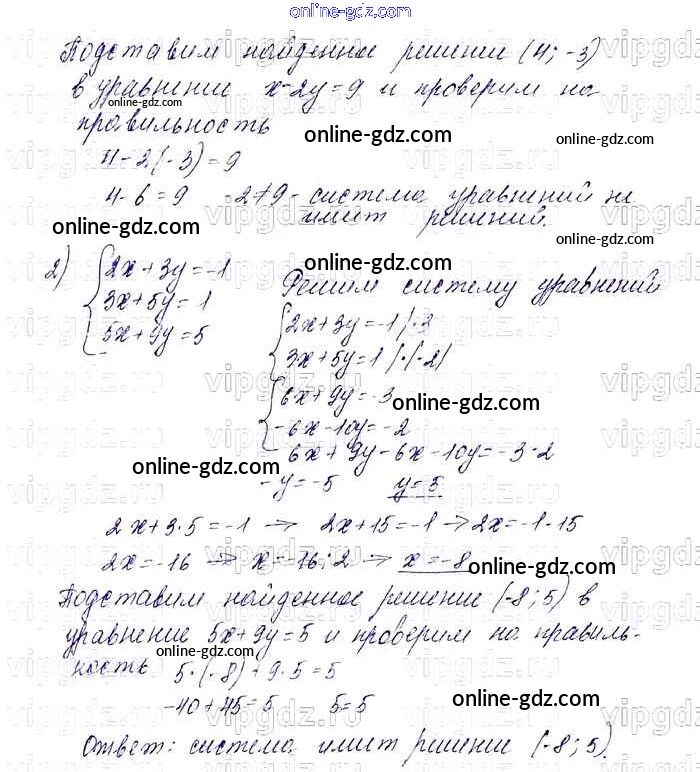 Подставим найденное решение (4; -3)
в уравнение x-2y=9 и проверим на
правильность
4-2(-3)=9
4-6=9 -2≠9 - система уравнений не
имеет решений.
2) {2x+3y=-1
3x+5y=1
5x+9y=5
Решим систему уравнений
{2x+3y=-1|·3
3x+5y=1|·(-2)
{6x+9y=-3
-6x-10y=-2
6x+9y-6x-10y=-3-2
-y=-5 y=5
2x+3·5=-1 → 2x+15=-1 → 2x=-1-15
2x=-16 → x=-16:2 → x=-8
Подставим найденное решение (-8; 5) в
уравнение 5x+9y=5 и проверим на правиль-
ность 5·(-8)+9·5=5
-40+45=5 5=5
Ответ: система имеет решение (-8; 5).
online-gdz.com
online-gdz.com
online-gdz.com
online-gdz.com
online-gdz.com
online-gdz.com
online-gdz.com
online-gdz.com
online-gdz.com
online-gdz.com
online-gdz.com
online-gdz.com
vipgdz.ru